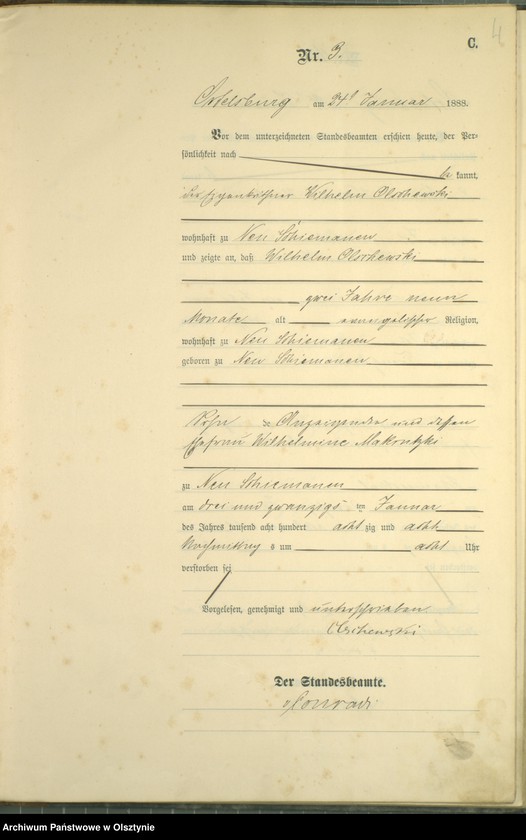 4
C.
Nr. 3.
Ortelsburg am 24t Januar 1888.
Vor dem unterzeichneten Standesbeamten erschien heute, der Per-
sönlichkeit nach
be kannt,
der Eigenkäthner Wilhelm Olschewski
wohnhaft zu Neu Schiemanen
und zeigte an, daß Wilhelm Olschewski
zwei Jahre neun
Monate alt evangelischer Religion,
wohnhaft zu Neu Schiemanen
geboren zu Neu Schiemanen
Sohn des Anzeigenden und dessen
Ehefrau Wilhelmine
zu Neu Schiemanen
am drei und zwanzigs ten Januar
des Jahres tausend acht hundert acht zig und acht
Nachmittag s um acht Uhr
verstorben sei
Vorgelesen, genehmigt und unterschrieben
Olschewski
Der Standesbeamte.
Conradi
Archiwum Państwowe w Olsztynie